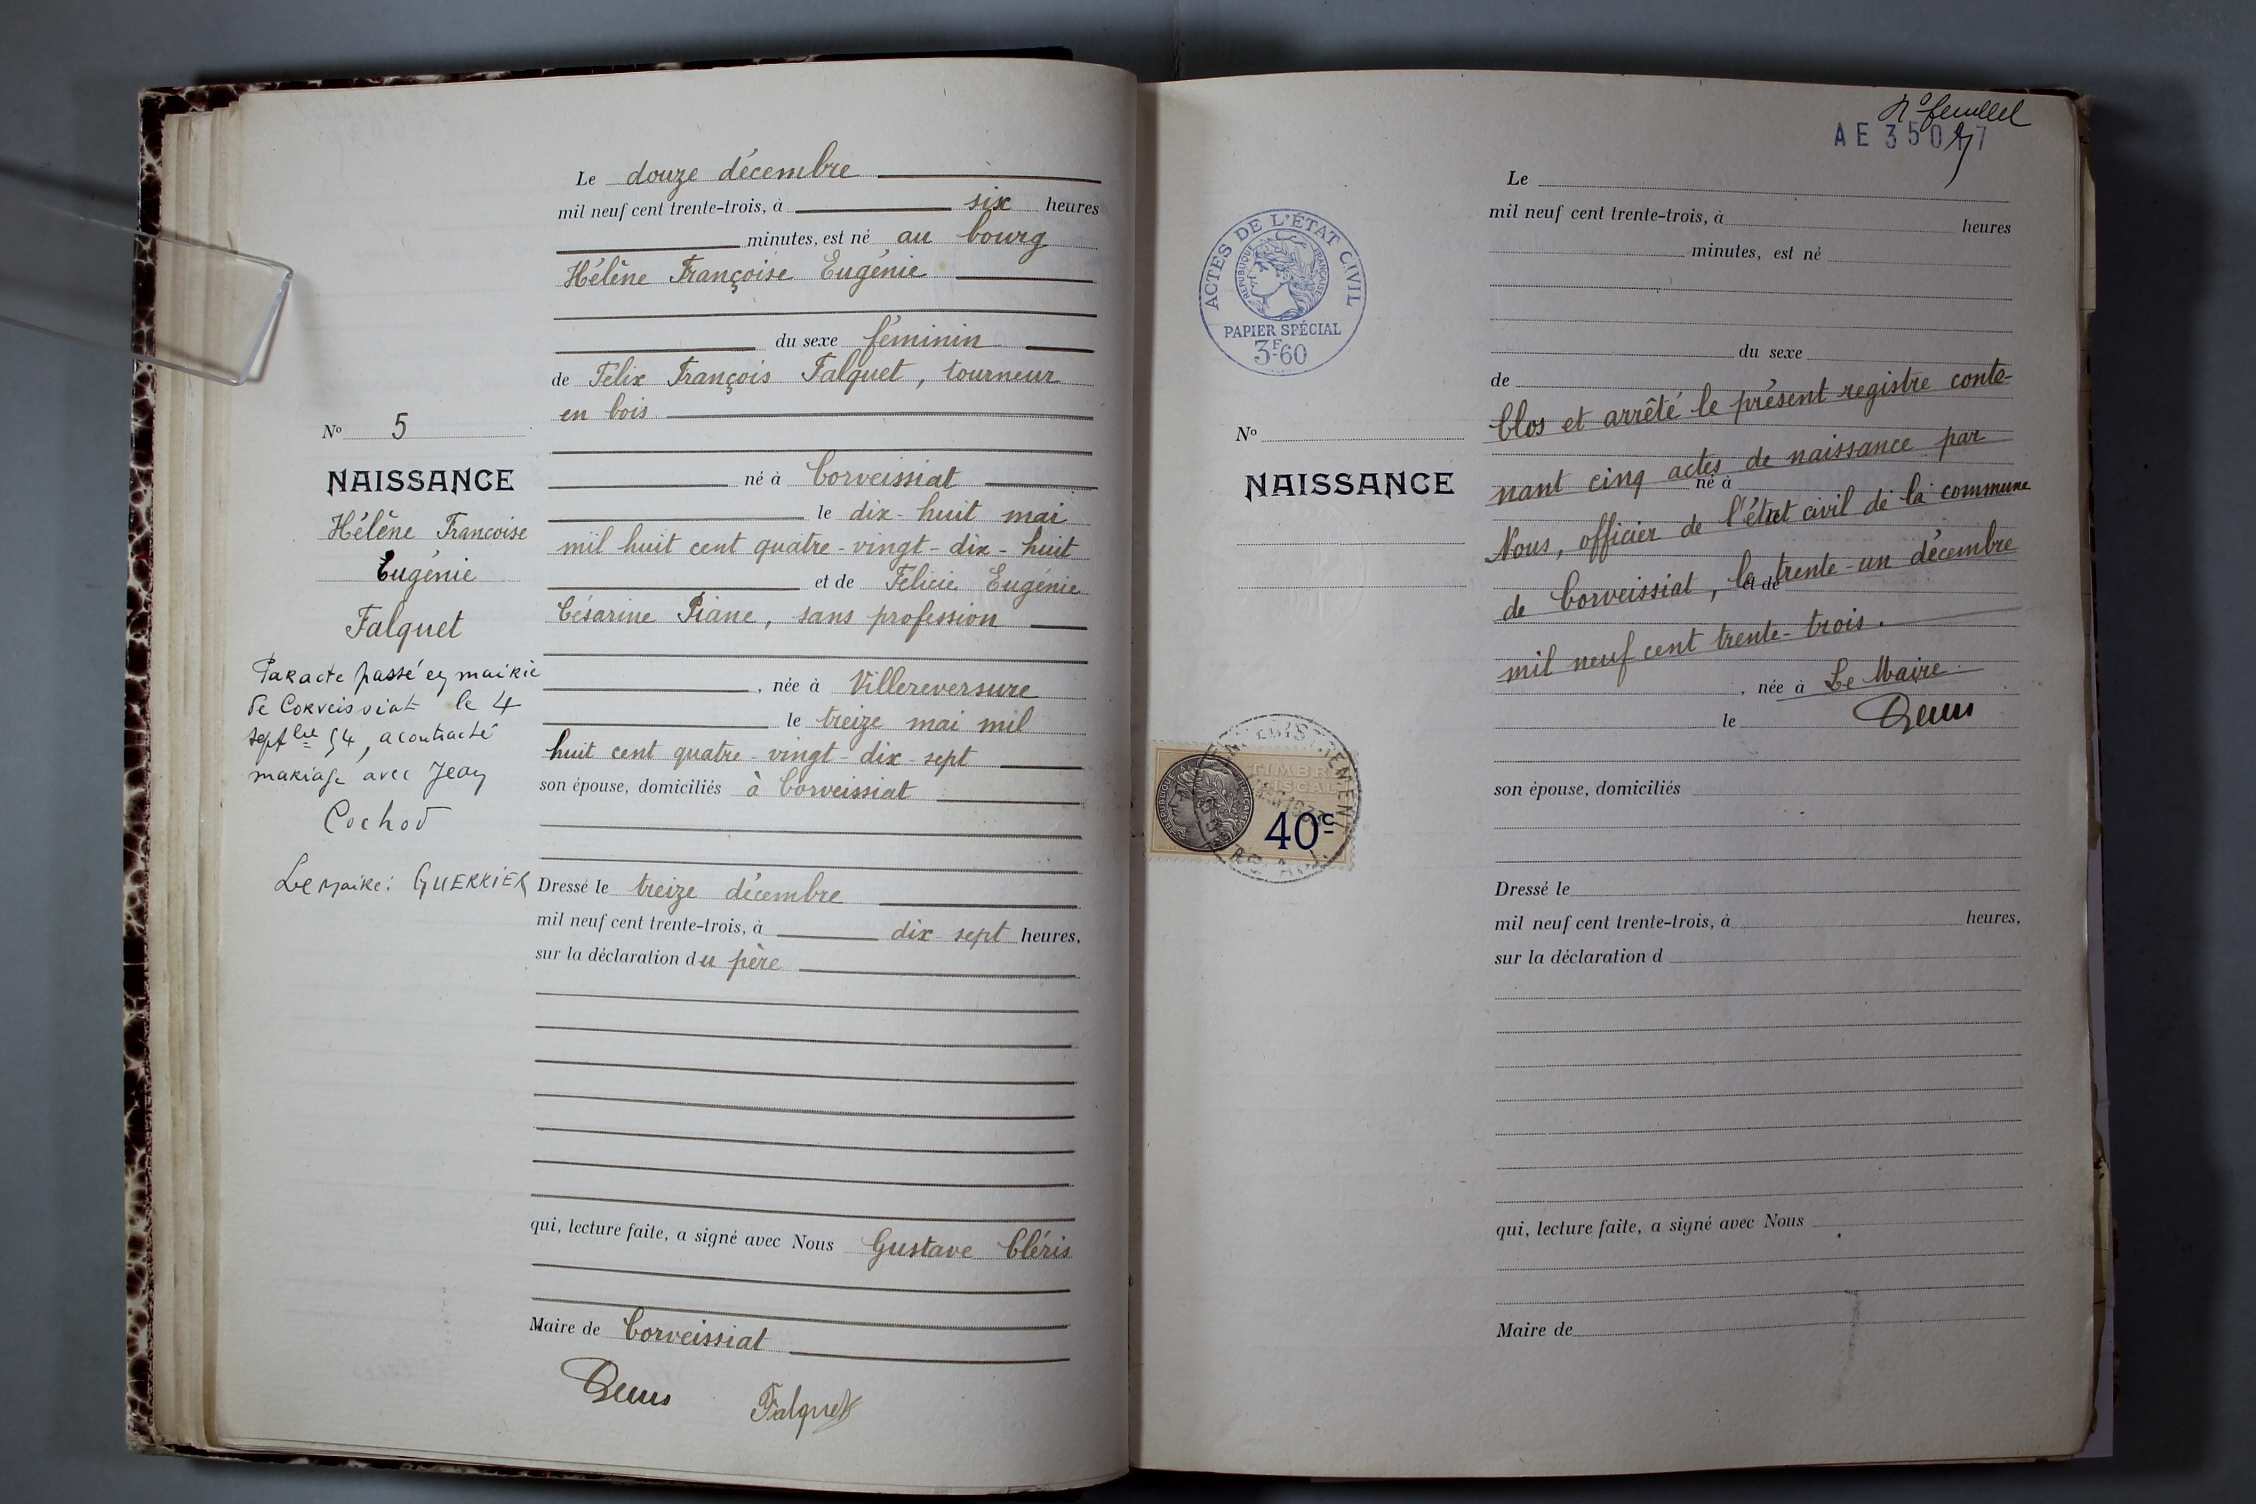 Le douze décembre
mil neuf cent trente-trois, à six heures
minutes, est né au bourg
Hélène Françoise Eugénie
du sexe féminin
de Félix François Falquet, tourneur
en bois
né à Corveissiat
le dix-huit mai
mil huit cent quatre-vingt-dix-huit
et de Félicie Eugénie
Césarine Piane, sans profession
, née à Villereversure
le treize mai mil
huit cent quatre-vingt-dix-sept
son épouse, domiciliés à Corveissiat
Dressé le treize décembre
mil neuf cent trente-trois, à dix sept heures,
sur la déclaration du père
qui, lecture faite, a signé avec Nous Gustave Cléris
Maire de Corveissiat
Falquet
No 5
NAISSANCE
Hélène Francoise
Eugénie
Falquet
Par acte passé en mairie
de Corveissiat le 4
septbre 54, a contracté
mariage avec Jean
Cochod
Le Maire: GUERRIER
No feuillet
AE 350
ACTES DE L'ÉTAT CIVIL
RÉPUBLIQUE FRANÇAISE
PAPIER SPÉCIAL
3F60
No
NAISSANCE
TIMBRE
FISCAL
40c
Le
mil neuf cent trente-trois, à heures
minutes, est né
du sexe
de
Clos et arrêté le présent registre conte-
nant cinq actes de naissance par
né à
Nous, officier de l'état civil de la commune
le
de Corveissiat, le trente-un décembre
et de
mil neuf cent trente-trois.
, née à Le Maire
le
son épouse, domiciliés
Dressé le
mil neuf cent trente-trois, à heures,
sur la déclaration d
qui, lecture faite, a signé avec Nous
Maire de